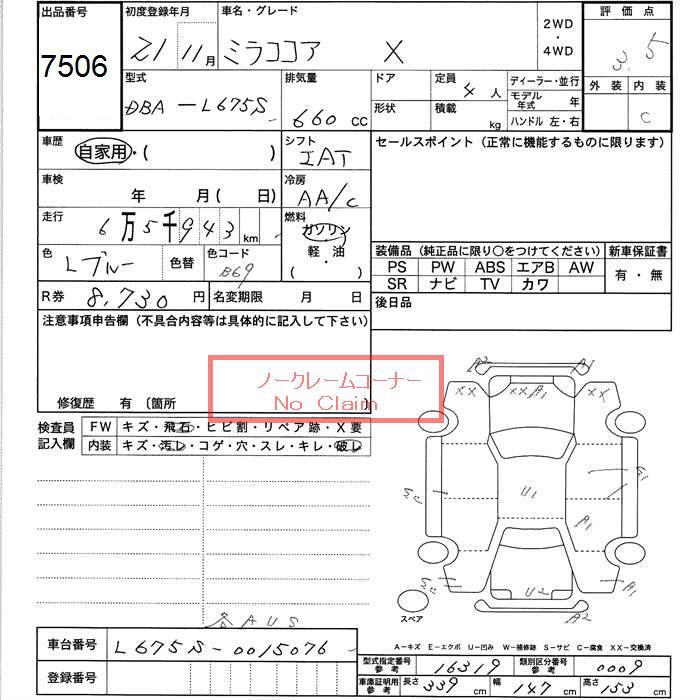 出品番号
7506
初度登録年月
21 11月
車名・グレード
ミラココア X
2WD
・
4WD
評価点
3.5
外装 内装
C
型式
DBA-L675S
排気量
660 CC
ドア
形状
定員
4 人
積載
kg
ディーラー・並行
モデル年式 年
ハンドル 左・右
車歴
自家用・( )
シフト
IAT
セールスポイント（正常に機能するものに限ります）
車検
年 月( 日)
冷房
AA/C
走行
6万5千943km
燃料
ガソリン
軽・油
( ・ )
色
Lブルー
色替
色コード
B69
装備品（純正品に限り○をつけてください）
新車保証書
PS PW ABS エアB AW
SR ナビ TV カワ
有・無
R券 8,730 円
名変期限 月 日
後日品
注意事項申告欄（不具合内容等は具体的に記入して下さい）
ノークレームコーナー
No Claim
修復歴 有〔箇所
検査員記入欄
FW キズ・飛石・ヒビ割・リペア跡・X要
内装 キズ・汚レ・コゲ・穴・スレ・キレ・破レ
A2 A1
XX XXB1 XX
G1
U1
A1
U2
A2
スペア
A-キズ E-エクボ U-凹み W-補修跡 S-サビ C-腐食 XX-交換済
車台番号 L675S-0015076
登録番号
型式指定番号参考 16319
類別区分番号参考 0009
車庫証明用参考 長さ 339 cm 幅 147 cm 高さ 153 cm